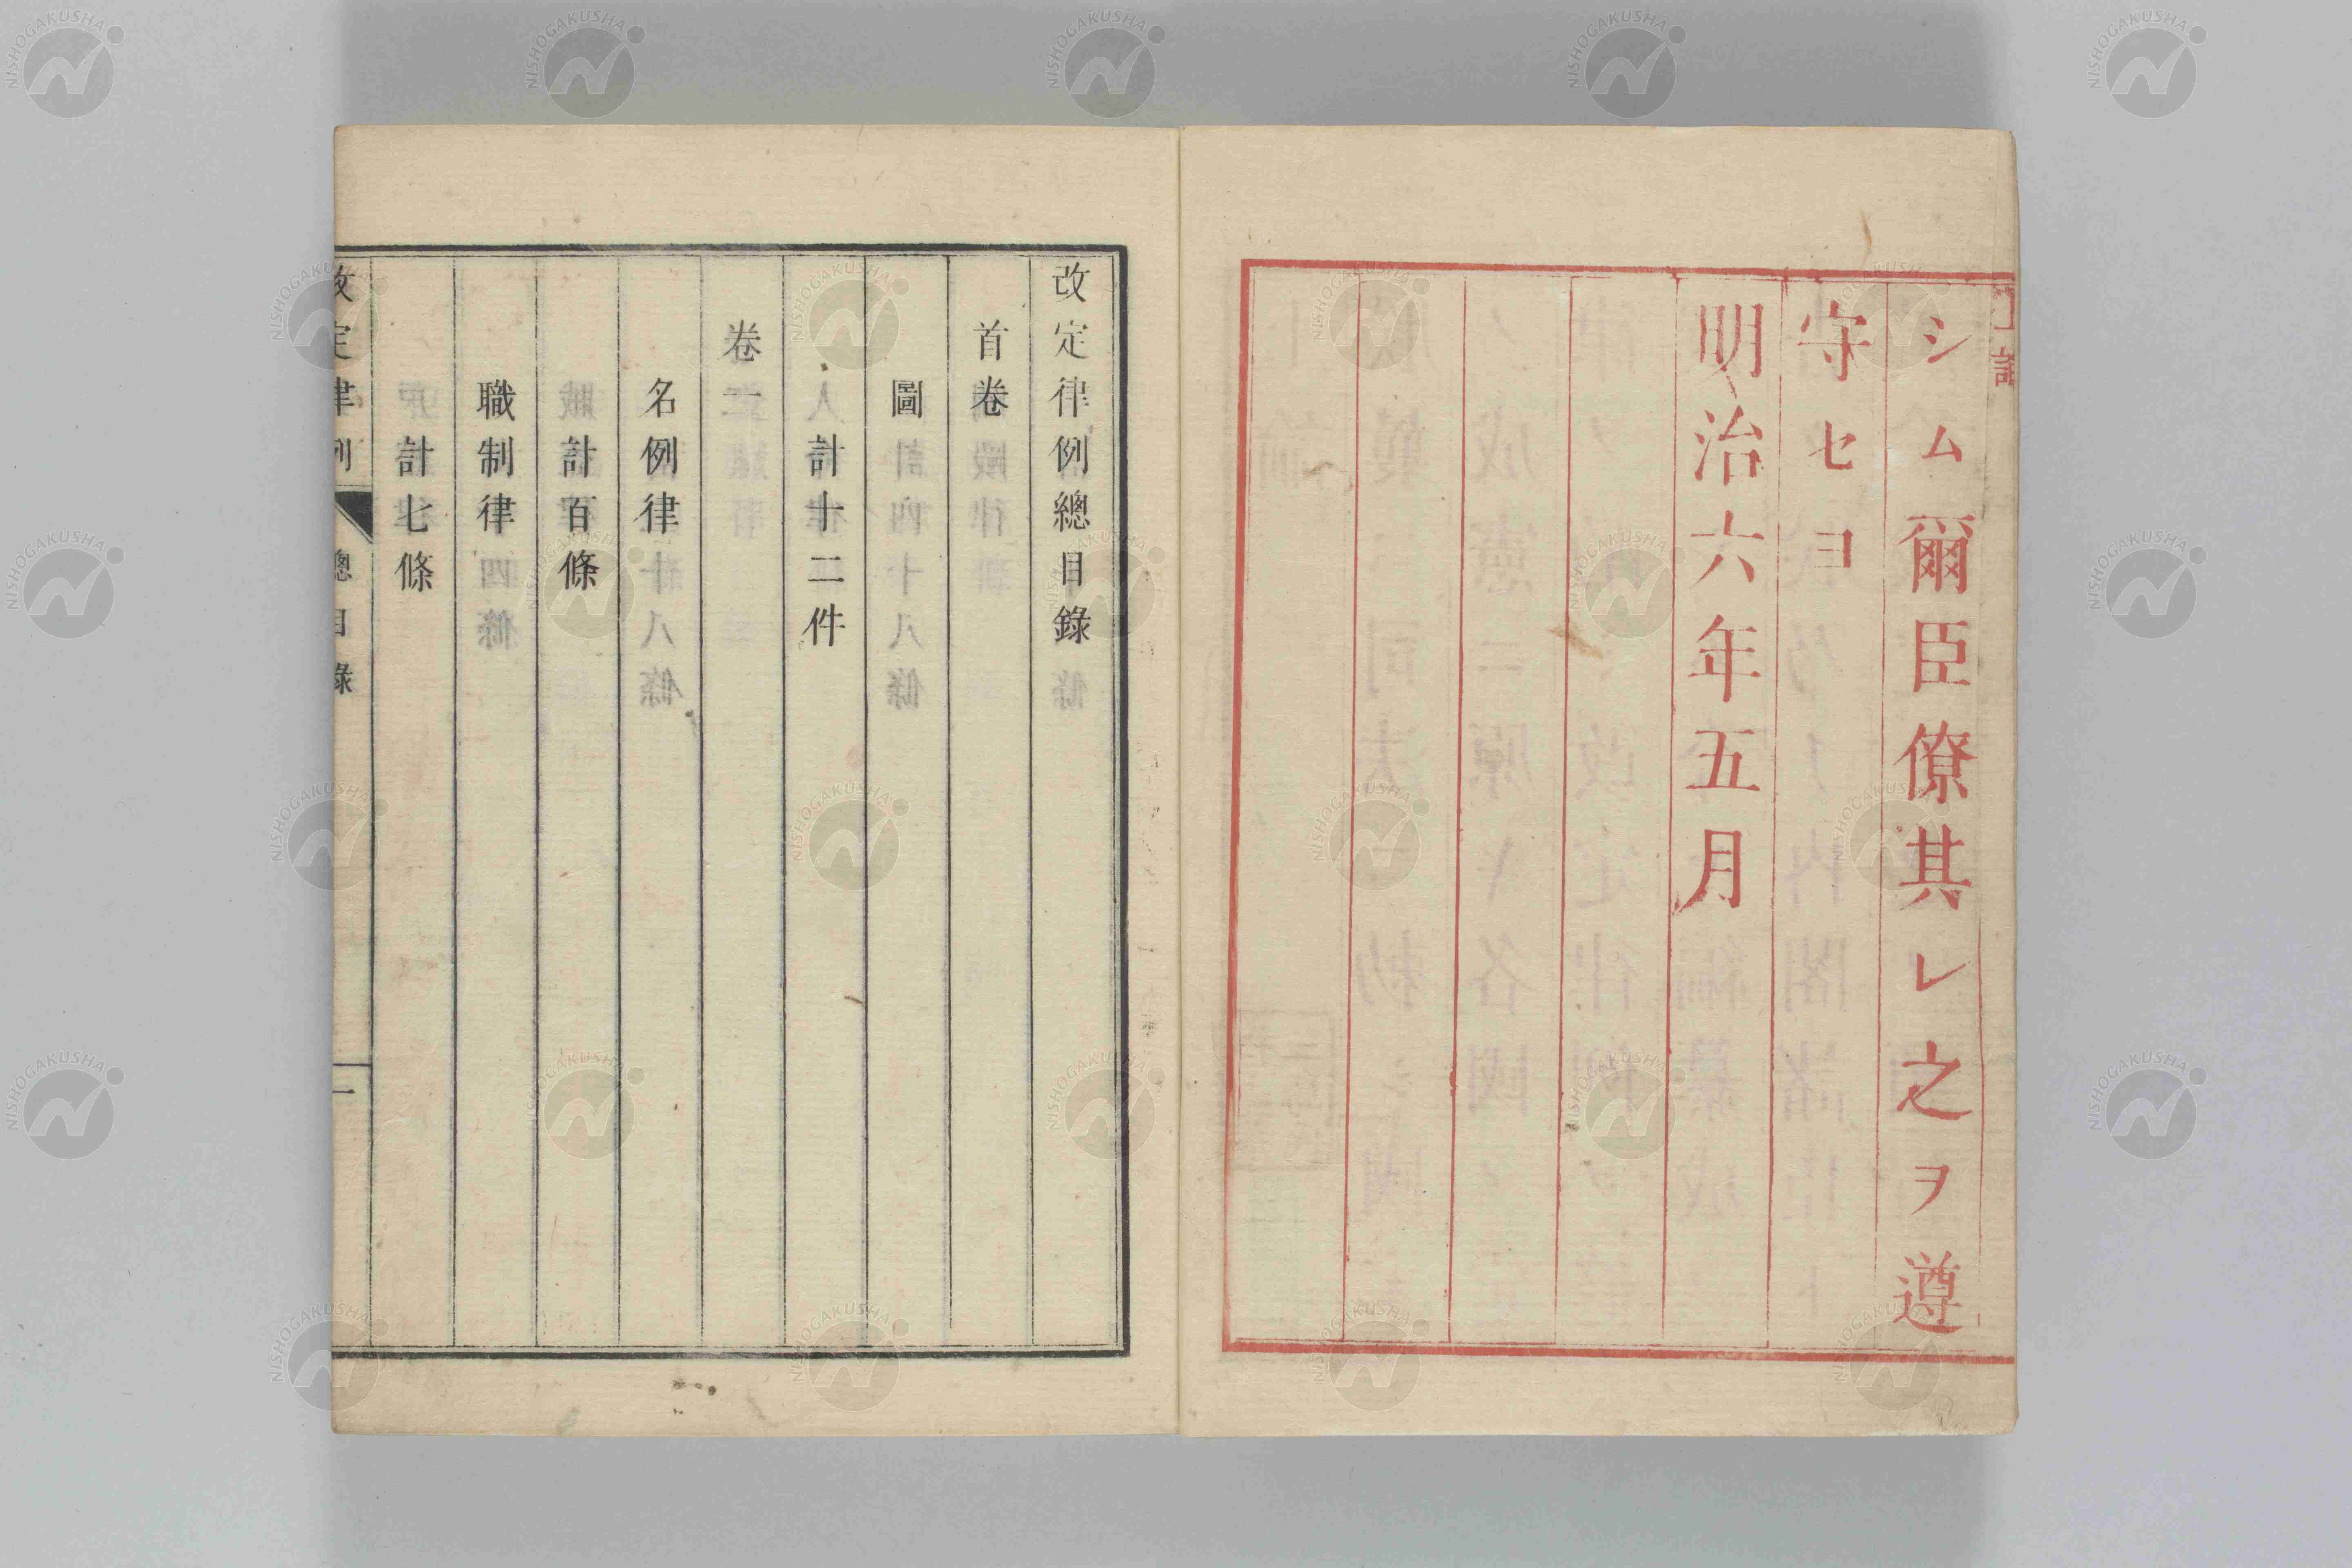 シム爾臣僚其レ之ヲ遵
守セヨ
明治六年五月
改定律例總目錄
首卷
圖
計十二件
卷一
名例律
計百條
職制律
計七條
改定律例
總目錄
一
NISHOGAKUSHA